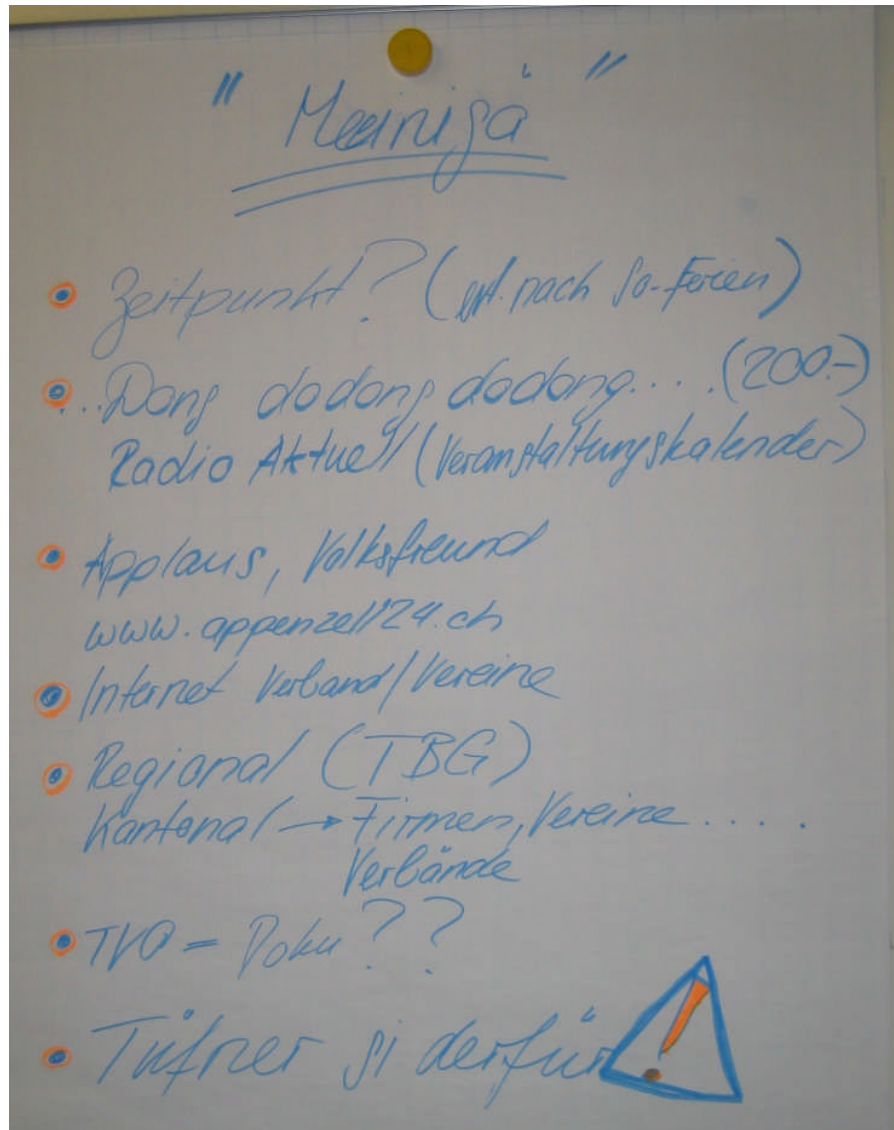 "Meinigä"
Zeitpunkt? (evt. nach So-Ferien)
...Dong dodong dodong.... (200.-)
Radio Aktuell (Veranstaltungskalender)
Applaus, Volksfreund
www.appenzell24.ch
Internet Verband/Vereine
Regional (TBG)
Kantonal → Firmen, Vereine....
Verbände
TVO = Doku??
Tüfner si derfür